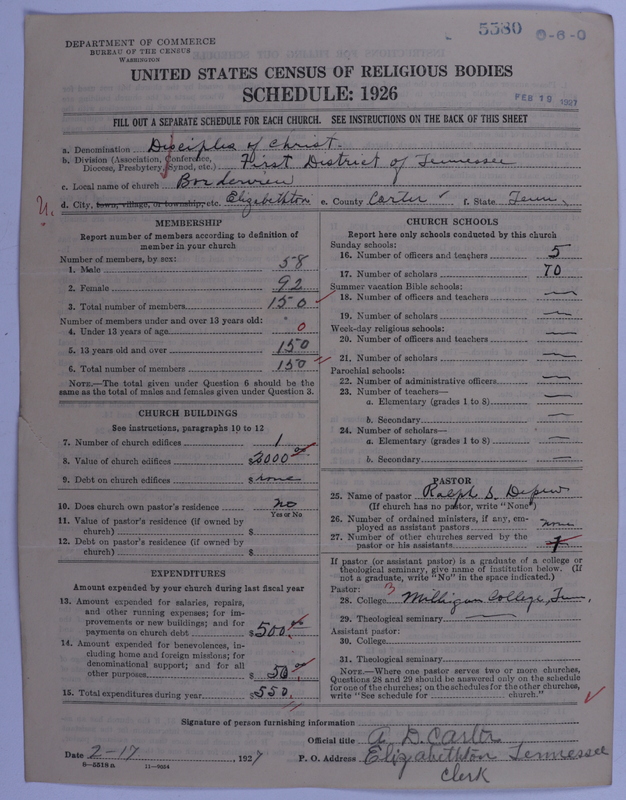 5380 0-6-0
DEPARTMENT OF COMMERCE
BUREAU OF THE CENSUS
WASHINGTON
UNITED STATES CENSUS OF RELIGIOUS BODIES
SCHEDULE: 1926
FEB 19 1927
FILL OUT A SEPARATE SCHEDULE FOR EACH CHURCH. SEE INSTRUCTIONS ON THE BACK OF THIS SHEET
a. Denomination Disciples of Christ
b. Division (Association, Conference, Diocese, Presbytery, Synod, etc.) First District of Tennessee
c. Local name of church Borderview
d. City, town, village, or township, etc. Elizabethton e. County Carter f. State Tenn.
MEMBERSHIP
Report number of members according to definition of
member in your church
Number of members, by sex:
1. Male 58
2. Female 92
3. Total number of members 150
Number of members under and over 13 years old:
4. Under 13 years of age 0
5. 13 years old and over 150
6. Total number of members 150
NOTE.—The total given under Question 6 should be the
same as the total of males and females given under Question 3.
CHURCH BUILDINGS
See instructions, paragraphs 10 to 12
7. Number of church edifices 1
8. Value of church edifices $2000 00
9. Debt on church edifices $ none
10. Does church own pastor's residence no
Yes or No
11. Value of pastor's residence (if owned by
church) $
12. Debt on pastor's residence (if owned by
church) $
EXPENDITURES
Amount expended by your church during last fiscal year
13. Amount expended for salaries, repairs,
and other running expenses; for im-
provements or new buildings; and for
payments on church debt $500 00
14. Amount expended for benevolences, in-
cluding home and foreign missions; for
denominational support; and for all
other purposes $50 00
15. Total expenditures during year $550.
CHURCH SCHOOLS
Report here only schools conducted by this church
Sunday schools:
16. Number of officers and teachers 5
17. Number of scholars 70
Summer vacation Bible schools:
18. Number of officers and teachers
19. Number of scholars
Week-day religious schools:
20. Number of officers and teachers
21. Number of scholars
Parochial schools:
22. Number of administrative officers
23. Number of teachers—
a. Elementary (grades 1 to 8)
b. Secondary
24. Number of scholars—
a. Elementary (grades 1 to 8)
b. Secondary
PASTOR
25. Name of pastor Ralph S. Depew
(If church has no pastor, write "None")
26. Number of ordained ministers, if any, em-
ployed as assistant pastors none
27. Number of other churches served by the
pastor or his assistants
If pastor (or assistant pastor) is a graduate of a college or
theological seminary, give name of institution below. (If
not a graduate, write "No" in the space indicated.)
Pastor:
28. College 3 Milligan College, Tenn.
29. Theological seminary
Assistant pastor:
30. College
31. Theological seminary
NOTE.—Where one pastor serves two or more churches,
Questions 28 and 29 should be answered only on the schedule
for one of the churches; on the schedules for the other churches,
write "See schedule for church."
Signature of person furnishing information
Official title A. D. Carter
Date 2-17, 1927 P. O. Address Elizabethton Tennessee
Clerk
8-5518a 11-9054